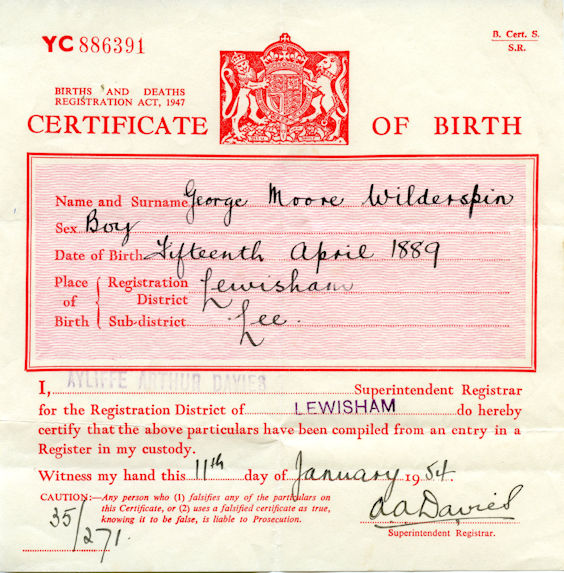 YC 886391
B. Cert. S.
S.R.
BIRTHS AND DEATHS
REGISTRATION ACT, 1947
CERTIFICATE OF BIRTH
Name and Surname George Moore Wilderspin
Sex Boy
Date of Birth Fifteenth April 1889
Place of Birth { Registration District Lewisham
Sub-district Lee.
I, AYLIFFE ARTHUR DAVIES Superintendent Registrar
for the Registration District of LEWISHAM do hereby
certify that the above particulars have been compiled from an entry in a
Register in my custody.
Witness my hand this 11th day of January 1954.
CAUTION:—Any person who (1) falsifies any of the particulars on
this Certificate, or (2) uses a falsified certificate as true,
knowing it to be false, is liable to Prosecution.
35/271.
A A Davies
Superintendent Registrar.